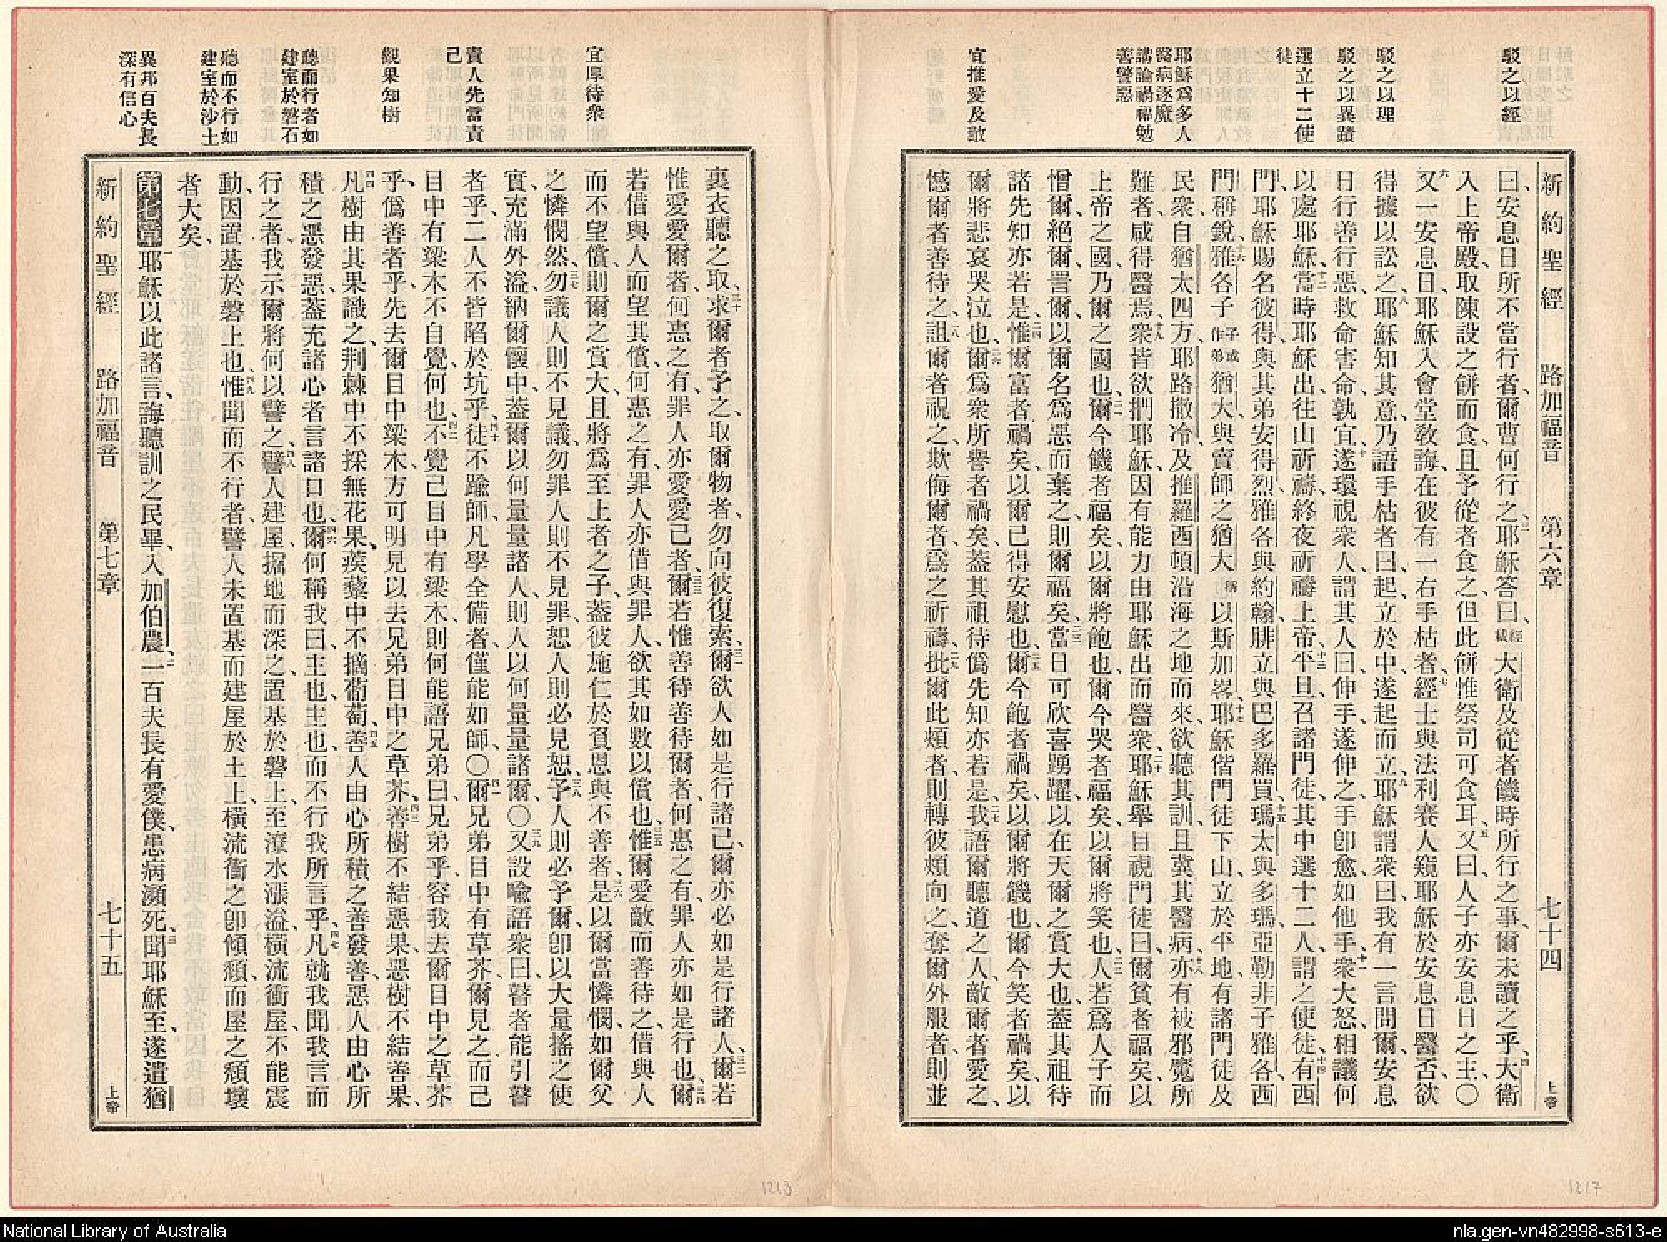 駁之以經
駁之以理
駁之以異蹟
選立十二使
徒
耶穌爲多人
醫病逐魔
講論禍福勉
善警惡
宜推愛及敵
新約聖經 路加福音 第六章 七十四 上帝
曰、安息日所不當行者、爾曹何行之、三耶穌答曰、經載大衛及從者饑時所行之事、爾未讀之乎、四大衛
入上帝殿、取陳設之餅而食、且予從者食之、但此餅惟祭司可食耳、五又曰、人子亦安息日之主、〇
六又一安息日、耶穌入會堂敎誨、在彼有一右手枯者、七經士與法利賽人窺耶穌於安息日醫否、欲
得據以訟之、八耶穌知其意、乃語手枯者曰、起、立於中、遂起而立、九耶穌謂衆曰、我有一言問爾、安息
日行善行惡、救命害命、孰宜、十遂環視衆人、謂其人曰、伸手、遂伸之、手卽愈如他手、十一衆大怒、相議何
以處耶穌、十二當時耶穌出、往山祈禱、終夜祈禱上帝、十三平旦、召諸門徒、其中選十二人、謂之使徒、十四有西
門、耶穌賜名彼得、與其弟安得烈、雅各與約翰、腓立與巴多羅買、十五瑪太與多瑪、亞勒非子雅各、西
門稱銳、十六雅各子子或作弟猶大、與賣師之猶大稱以斯加畧、十七耶穌偕門徒下山、立於平地、有諸門徒及
民衆、自猶太四方、耶路撒冷、及推羅西頓沿海之地而來、欲聽其訓、且冀其醫病、十八亦有被邪魔所
難者、咸得醫焉、十九衆皆欲捫耶穌、因有能力由耶穌出而醫衆、二十耶穌舉目視門徒曰、爾貧者福矣、以
上帝之國、乃爾之國也、二一爾今饑者福矣、以爾將飽也、爾今哭者福矣、以爾將笑也、二二人若爲人子而
憎爾、絕爾、詈爾、以爾名爲惡而棄之、則爾福矣、二三當日可欣喜踴躍、以在天爾之賞大也、蓋其祖待
諸先知亦若是、二四惟爾富者禍矣、以爾已得安慰也、二五爾今飽者禍矣、以爾將饑也、爾今笑者禍矣、以
爾將悲哀哭泣也、二六爾爲衆所譽者禍矣、蓋其祖待僞先知亦若是、二七我語爾聽道之人、敵爾者愛之、
憾爾者善待之、二八詛爾者祝之、欺侮爾者、爲之祈禱、二九批爾此頰者、則轉彼頰向之、奪爾外服者、則並
宜厚待衆
責人先當責
己
觀果知樹
聽而行者如
建室於磐石
聽而不行如
建室於沙土
異邦百夫長
深有信心
裏衣聽之取、三十求爾者予之、取爾物者、勿向彼復索、三一爾欲人如是行諸己、爾亦必如是行諸人、三二爾若
惟愛愛爾者、何惠之有、罪人亦愛愛己者、三三爾若惟善待善待爾者、何惠之有、罪人亦如是行也、三四爾
若借與人而望其償、何惠之有、罪人亦借與罪人、欲其如數以償也、三五惟爾愛敵而善待之、借與人
而不望償、則爾之賞大、且將爲至上者之子、蓋彼施仁於負恩與不善者、三六是以爾當憐憫、如爾父
之憐憫然、三七勿議人、則不見議、勿罪人、則不見罪、恕人、則必見恕、三八予人、則必予爾、卽以大量搖之使
實、充滿外溢、納爾懷中、蓋爾以何量量諸人、則人以何量量諸爾、〇三九又設喩語衆曰、瞽者能引瞽
者乎、二人不皆陷於坑乎、四十徒不踰師、凡學全備者、僅能如師、〇四一爾兄弟目中有草芥、爾見之、而己
目中有梁木、不自覺、何也、四二不覺己目中有梁木、則何能語兄弟曰、兄弟乎、容我去爾目中之草芥
乎、僞善者乎、先去爾目中梁木、方可明見、以去兄弟目中之草芥、四三善樹不結惡果、惡樹不結善果、
四四凡樹由其果識之、荆棘中不採無花果、蒺藜中不摘葡萄、四五善人由心所積之善發善、惡人由心所
積之惡發惡、蓋充諸心者言諸口也、四六爾何稱我曰、主也、主也、而不行我所言乎、四七凡就我聞我言而
行之者、我示爾將何以譬之、四八譬人建屋、掘地而深之、置基於磐上、至潦水漲溢、橫流衝屋、不能震
動、因置基於磐上也、四九惟聞而不行者、譬人未置基而建屋於土上、橫流衝之卽傾頹、而屋之頹壞
者大矣、
第七章 一耶穌以此諸言誨聽訓之民畢、入加伯農、二一百夫長有愛僕、患病瀕死、三聞耶穌至、遂遣猶
新約聖經 路加福音 第七章 七十五 上帝
1213
1217
National Library of Australia
nla.gen-vn482998-s613-e